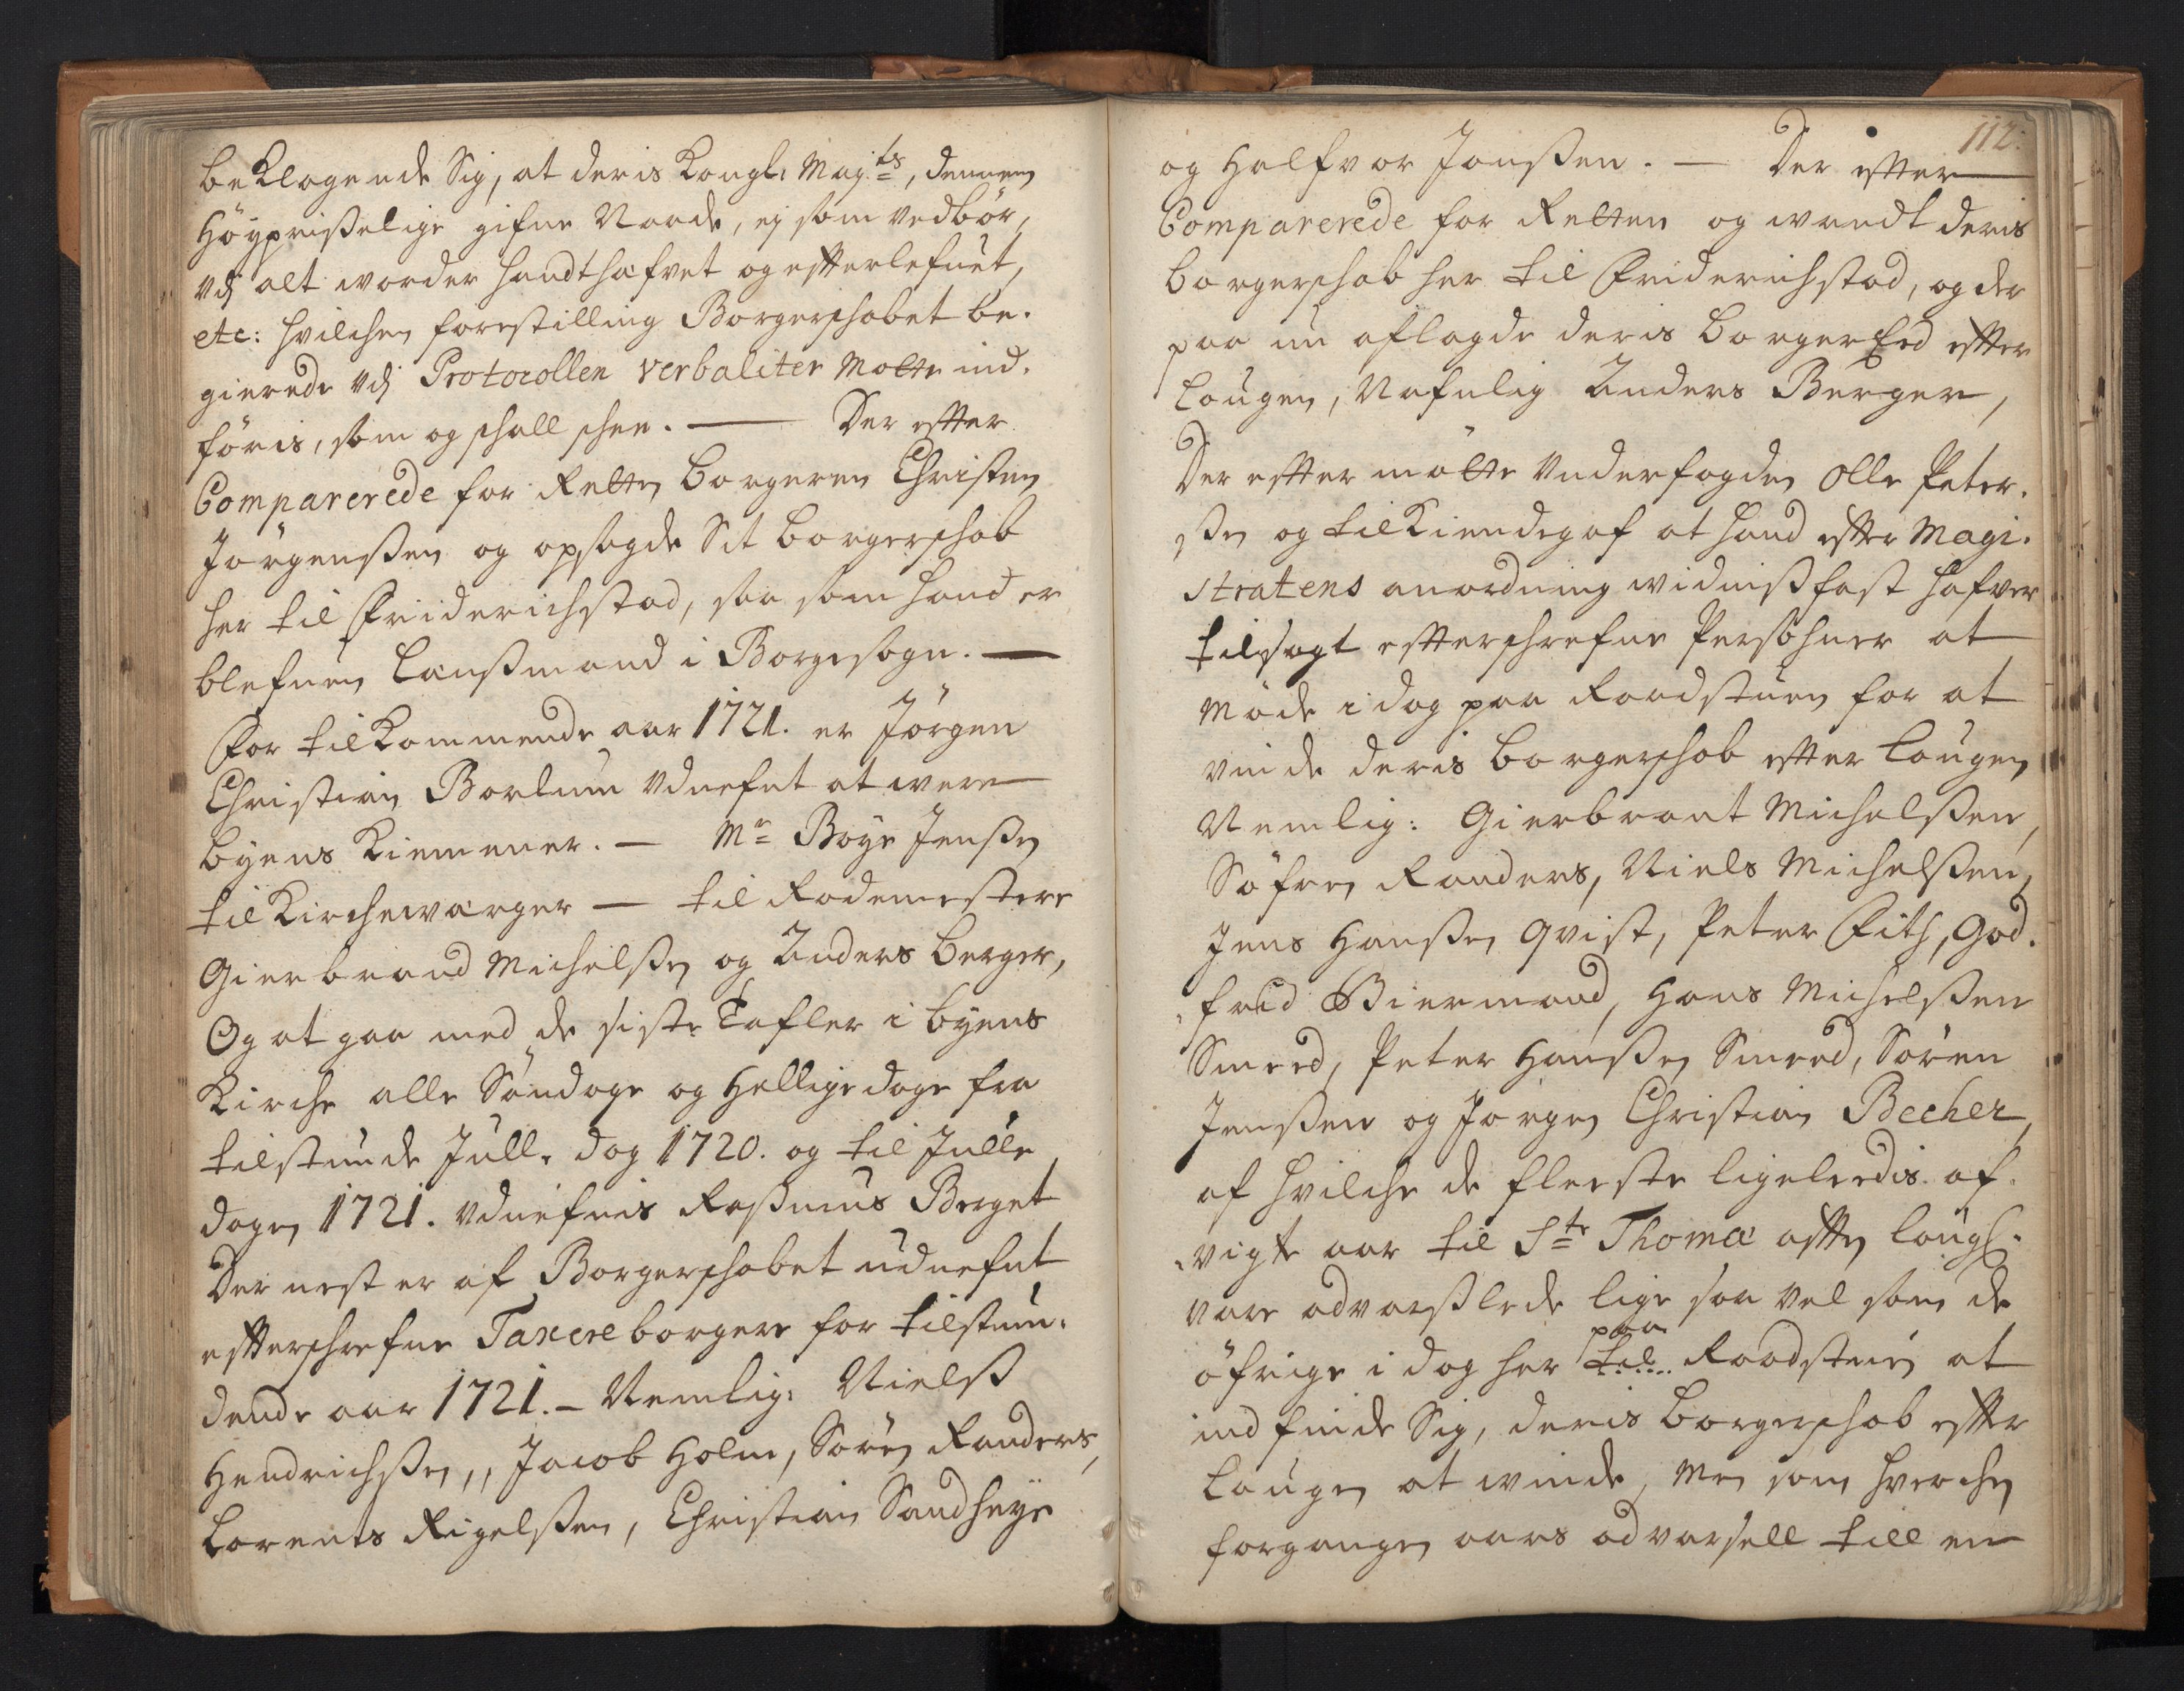 beklagende Sig, at deris Kongl: Maj:ts, dennem
Høypriselige gifne Naade, ej som vedbør,
vdj alt vorder handthæfvet og efterlefuet,
etc: hvilchen forestilling Borgerschabet be-
gierede vdj Protocollen verbaliter Motte ind-
føris, som og schall schee. — Der efter
Comparerede for Retten borgeren Christen
Jørgenßen og opsagde Sit borgerschab
her til Friderichstad, saa som hand er
blefuen Lanßmand i Borgesogn. —
For tilkommende aar 1721. er Jørgen
Christian Borlum vdnefnt at were
byens Kiemener. — Mr Boye Jenßen
til Kirchewærger — til Rodemestere
Gierbrand Michelßen og Anders Berger,
Og at gaa med de siste Tafler i byens
Kirche alle Søndage og Hellige dage fra
tilstunde Julle dag 1720. og til Julle
dagen 1721. vdnefnis Raßmus Berget
Der nest er af Borgerschabet udnefnt
efterschrefne Taxere borgere for tilstun-
dende aar 1721. — Nemlig: Nielß
Hendrichßen, Jacob Holm, Søren Randers,
Lorents Rigelßen, Christian Sandheye
112.
og Halfvor Jonßen. — Der efter
Comparerede for Retten og wandt deris
borgerschab her til Friderichstad, og der
paa nu aflagde deris borger Eed efter
Lougen, Nafnlig Anders Burger,
Der efter møtte Underfogden Olle Peter-
ßen og tilkiendegaf at hand efter Magi-
stratens anordning widnißfast hafver
tilsagt efterschrefne Persohner at
møde i dag paa Raadstuen for at
vinde deris borgerschab efter Lougen
Nemlig: Gierbrant Michelßen,
Søfren Randers, Niels Michelßen,
Jens Hanßen Qvist, Peter Fith, God-
fred Biermand, Hans Michelßen
Smeed, Peter Hanßen Smeed, Søren
Jenßen og Jørgen Christian Becher,
af hvilche de fleeste ligeleedis af-
vigte aar til Ste Thomæ aften lougl:
vare advarßlede lige saa vel som de
øfrige i dag her paa til Raadstuen at
indfinde Sig, deris borgerschab efter
Lougen at winde, Men som hverchen
forgangen aars advarsell till en